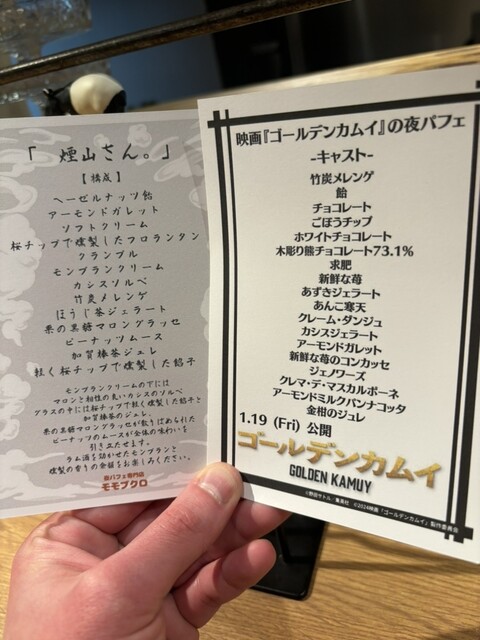 「 煙山さん。」
【構成】
ヘーゼルナッツ飴
アーモンドガレット
ソフトクリーム
桜チップで燻製したフロランタン
クランブル
モンブランクリーム
カシスソルベ
竹炭メレンゲ
ほうじ茶ジェラート
栗の黒糖マロングラッセ
ピーナッツムース
加賀棒茶ジュレ
軽く桜チップで燻製した餡子
モンブランクリームの下には
マロンと相性の良いカシスのソルベ
グラスの中には桜チップで軽く燻製した餡子と
加賀棒茶のジュレ。
栗の黒糖マロングラッセが散りばめられた
ピーナッツのムースが全体の味わいを
引き立たせます。
ラム酒を効かせたモンブランと
燻製の香りの余韻をお楽しみください。
夜パフェ専門店
モモブクロ
映画『ゴールデンカムイ』の夜パフェ
-キャスト-
竹炭メレンゲ
飴
チョコレート
ごぼうチップ
ホワイトチョコレート
木彫り熊チョコレート73.1%
求肥
新鮮な苺
あずきジェラート
あんこ寒天
クレーム・ダンジュ
カシスジェラート
アーモンドガレット
新鮮な苺のコンカッセ
ジェノワーズ
クレマ・デ・マスカルポーネ
アーモンドミルクパンナコッタ
金柑のジュレ
1.19（Fri）公開
ゴールデンカムイ
GOLDEN KAMUY
©野田サトル／集英社 ©2024映画「ゴールデンカムイ」製作委員会